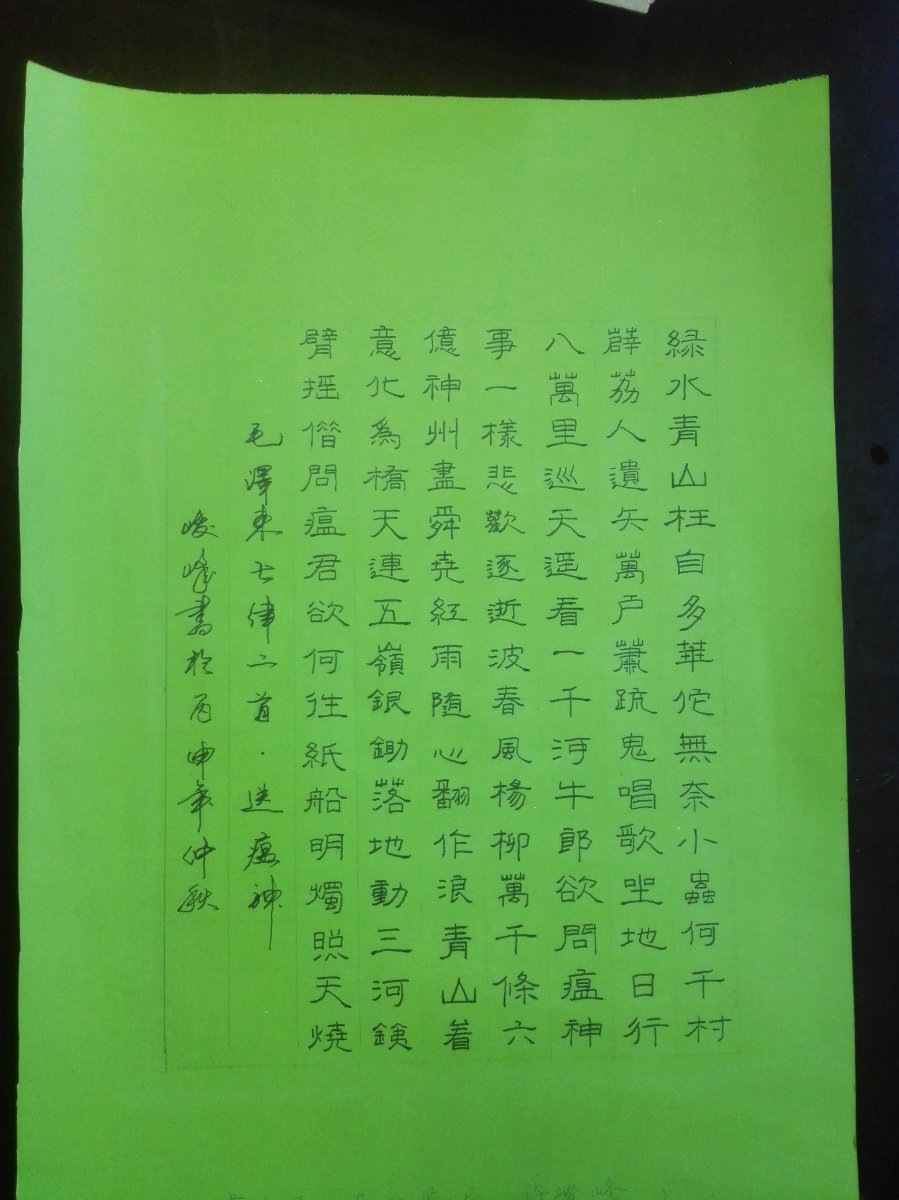 緑水青山枉自多華佗無奈小蟲何千村
薜荔人遺矢萬户蕭疏鬼唱歌坐地日行
八萬里巡天遥看一千河牛郎欲問瘟神
事一樣悲歡逐逝波春風楊柳萬千條六
億神州盡舜堯紅雨随心翻作浪青山着
意化為橋天連五嶺銀鋤落地動三河鐵
臂摇借問瘟君欲何往紙船明燭照天燒
毛澤東七律二首·送瘟神
峻峰書於丙申年仲秋